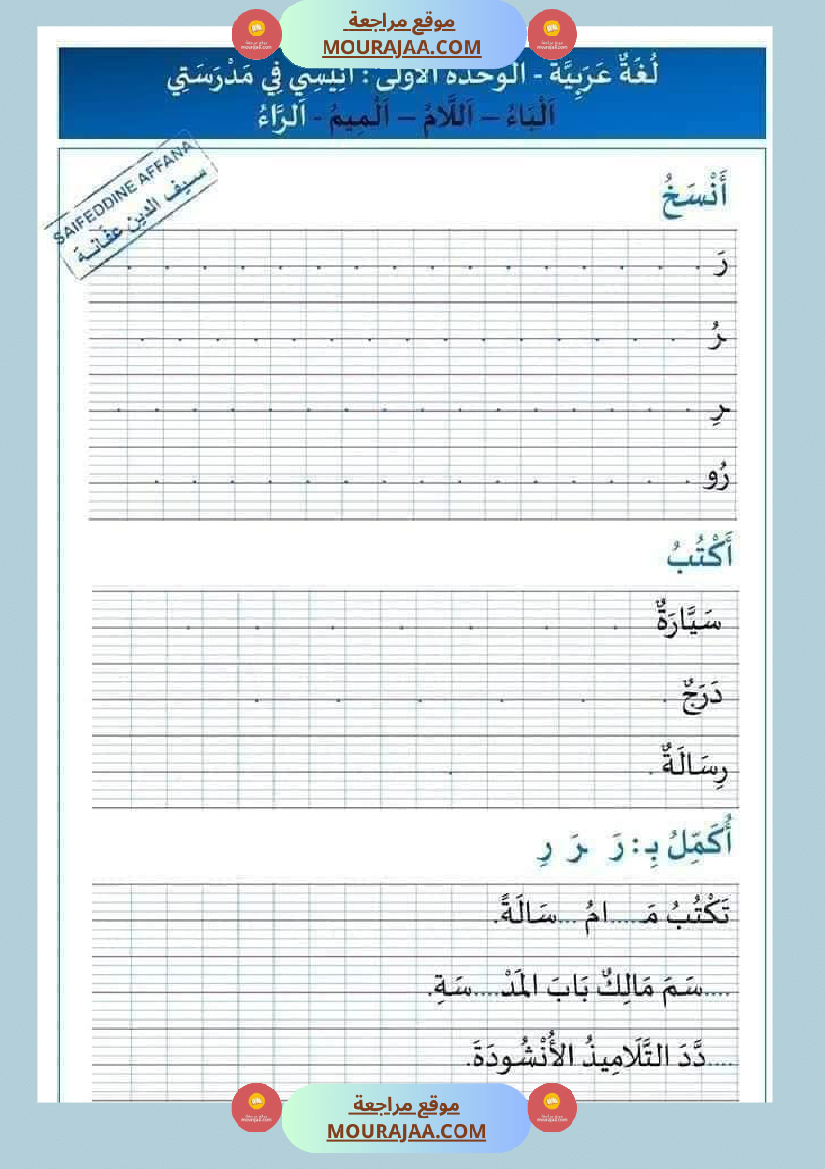 موقع مراجعة
MOURAJAA.COM
لُغَةٌ عَرَبِيَّة - الوحدة الأولى : أَنِيسِي فِي مَدْرَسَتِي
اَلْبَاءُ – اَللَّامُ – اَلْمِيمُ - اَلرَّاءُ
SAIFEDDINE AFFANA
سيف الدين عفانة
أَنْسَخُ
رَ
ـرُ
ـرِ
رُو
أَكْتُبُ
سَيَّارَةٌ
دَرَجٌ
رِسَالَةٌ
أُكَمِّلُ بِـ: رَ ـرَ رِ
تَكْتُبُ مَـ.....امُ ...سَالَةً.
....سَمَ مَالِكٌ بَابَ المَدْ....سَةِ.
....دَّدَ التَّلَامِيذُ الأُنْشُودَةَ.
موقع مراجعة
MOURAJAA.COM